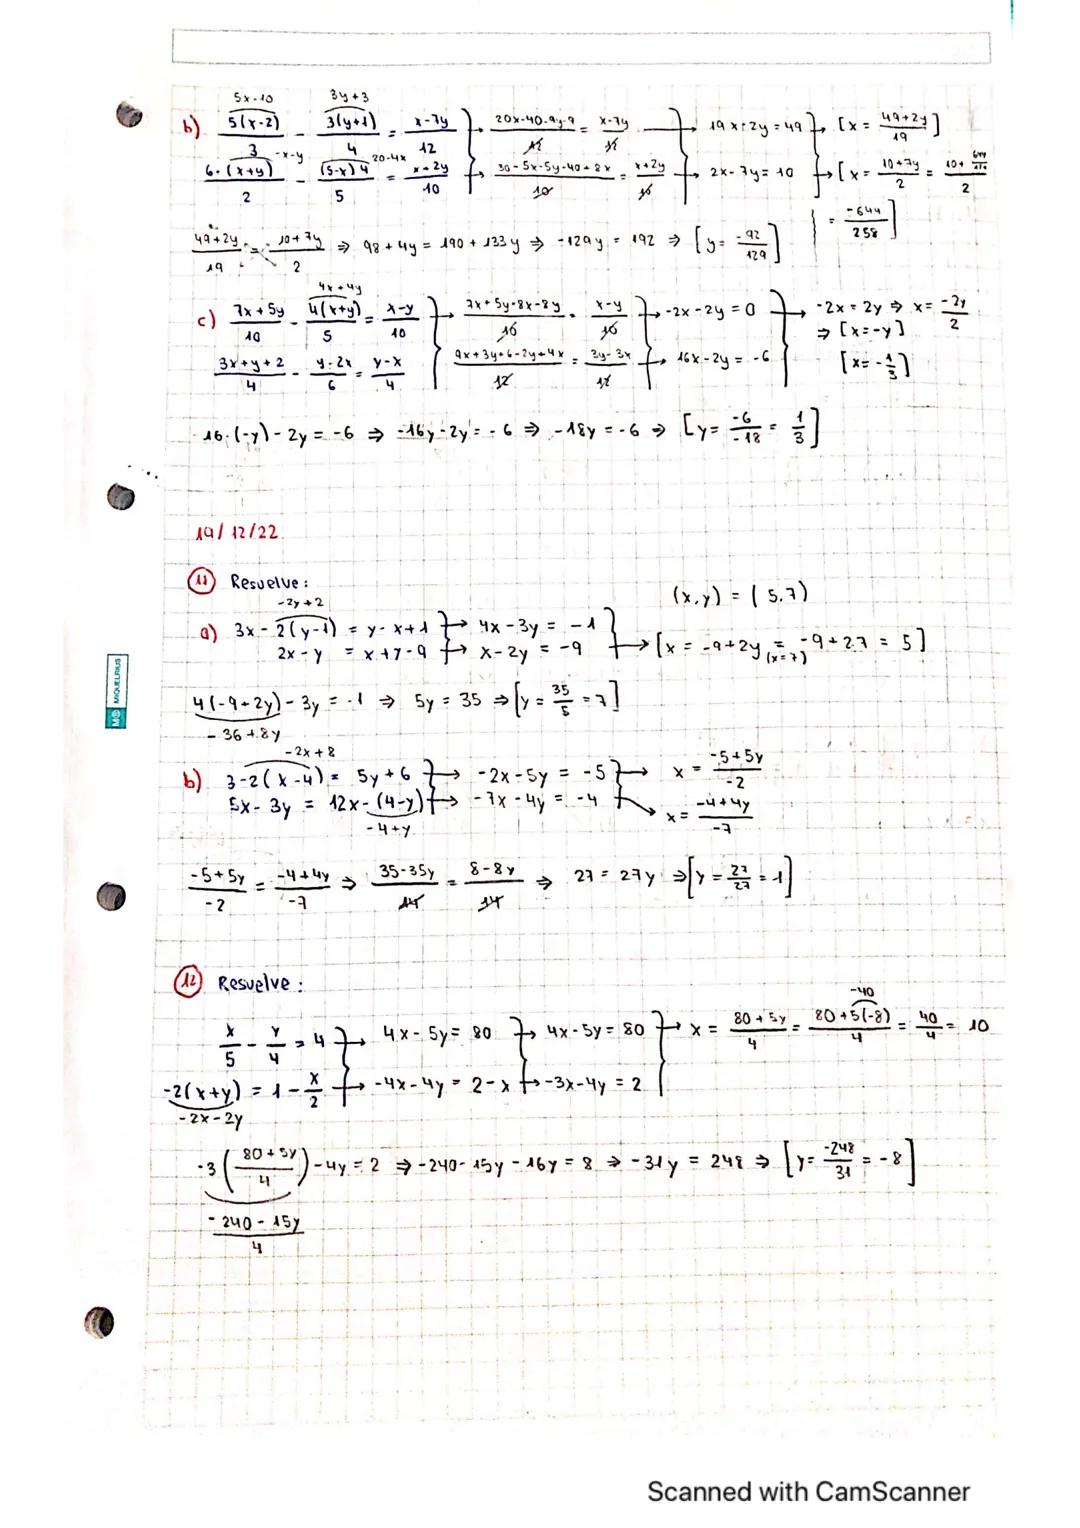 5x-10 3y+3
b) 5(x-2)/3 - 3(y+1)/4 = x-7y/12 } → 20x-40-9y-9/12 = x-7y/12 → 19x-2y=49 → [x = 49+2y/19]
-x-y 20-4x
6·(x+y)/2 - (5-x)4/5 = x+2y/10 → 30-5x-5y-40+8x/10 = x+2y/10 → 2x-7y=10 → [x = 10+7y/2 =
= -644/258]
49+2y/19 = 10+7y/2 ⇒ 98+4y = 190+133y ⇒ -129y = 192 ⇒ [y= -92/129]
4x+4y
c) 7x+5y/10 - 4(x+y)/5 = x-y/10 } → 7x+5y-8x-8y/10 = x-y/10 } → -2x-2y=0 } → -2x=2y ⇒ x= -2y/2
⇒ [x=-y]
3x+y+2/4 - y-2x/6 = y-x/4 → 9x+3y+6-2y+4x/12 = 3y-3x/12 → 16x-2y=-6 [x=-1/3]
16·(-y)-2y=-6 ⇒ -16y-2y=-6 ⇒ -18y=-6 ⇒ [y= -6/-18 = 1/3]
19/12/22
11 Resuelve: (x,y) = (5,7)
-2y+2
a) 3x-2(y-1) = y-x+1 } → 4x-3y = -1
2x-y = x+7-9 → x-2y = -9 } → [x = -9+2y = -9+2·7 = 5]
(x=7)
4(-9+2y)-3y = -1 ⇒ 5y = 35 ⇒ [y = 35/5 = 7]
-36+8y
-2x+8
b) 3-2(x-4) = 5y+6 } → -2x-5y = -5 } → x = -5+5y/-2
5x-3y = 12x-(4-y) → -7x-4y = -4 → x = -4+4y/-7
-4+y
-5+5y/-2 = -4+4y/-7 ⇒ 35-35y/14 = 8-8y/14 ⇒ 27 = 27y ⇒ [y = 27/27 = 1]
12 Resuelve:
-40
x/5 - y/4 = 4 } → 4x-5y = 80 } → 4x-5y = 80 } → x = 80+5y/4 = 80+5(-8)/4 = 40/4 = 10
-2(x+y) = 1-x/2 → -4x-4y = 2-x → -3x-4y = 2
-2x-2y
-3(80+5y/4)-4y = 2 ⇒ -240-15y-16y = 8 ⇒ -31y = 248 ⇒ [y= -248/31 = -8]
-240-15y/4
MIQUELRIUS
Scanned with CamScanner